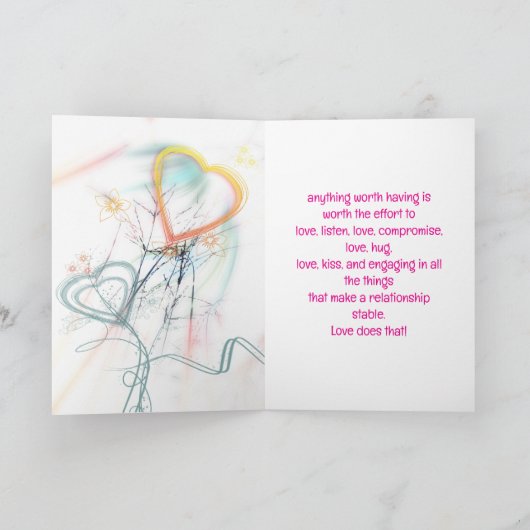 anything worth having is
worth the effort to
love, listen, love, compromise,
love, hug,
love, kiss, and engaging in all
the things
that make a relationship
stable.
Love does that!